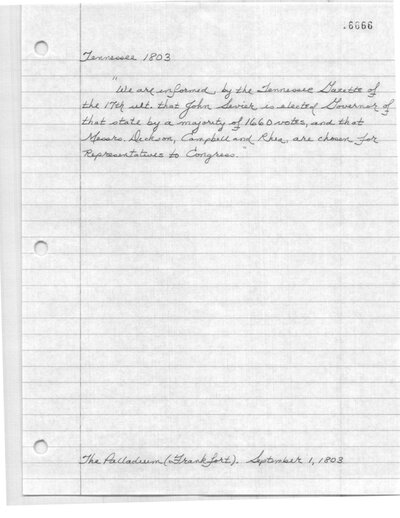 .6666
Tennessee 1803
"We are informed, by the Tennessee Gazette of
the 17th ult. that John Sevier is elected Governor of
that state by a majority of 1660 votes, and that
Messrs. Dickson, Campbell and Rhea, are chosen for
Representatives to Congress."
The Palladium (Frankfort). September 1, 1803